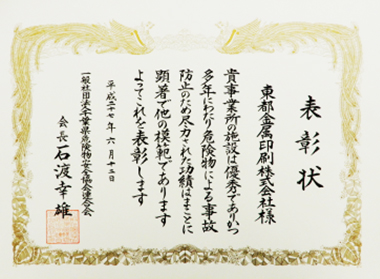 表彰状
東都金属印刷株式会社様
貴事業所の施設は優秀でありかつ
多年にわたり危険物による事故
防止のため尽力された功績はまことに
顕著で他の模範であります
よってこれを表彰します
平成二十七年六月十二日
一般社団法人千葉県危険物安全協会連合会
会長 石渡幸雄